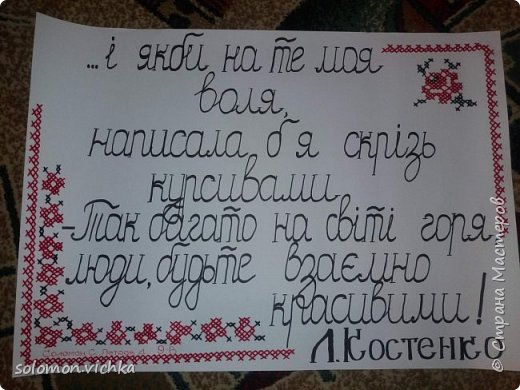 ...і якби на те моя
воля,
написала б я скрізь
курсивами
-Так багато на світі горя,
люди, будьте взаємно
красивими!
Л.Костенко
solomon.vichka
© Страна Мастеров